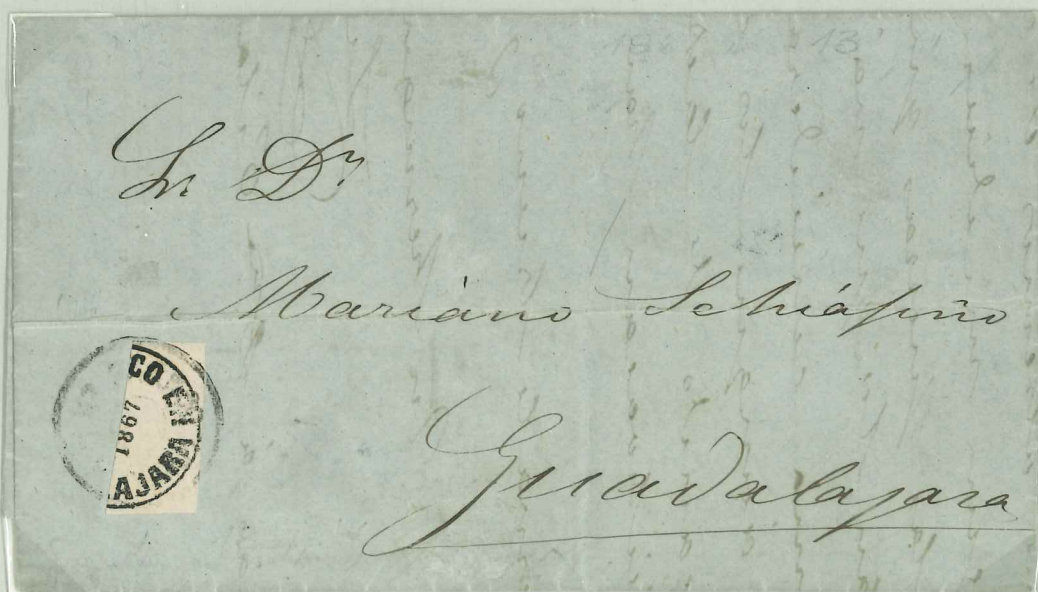 Sr Dn
Mariano Schiáfino
Guadalajara
CO EN
1867
AJARA